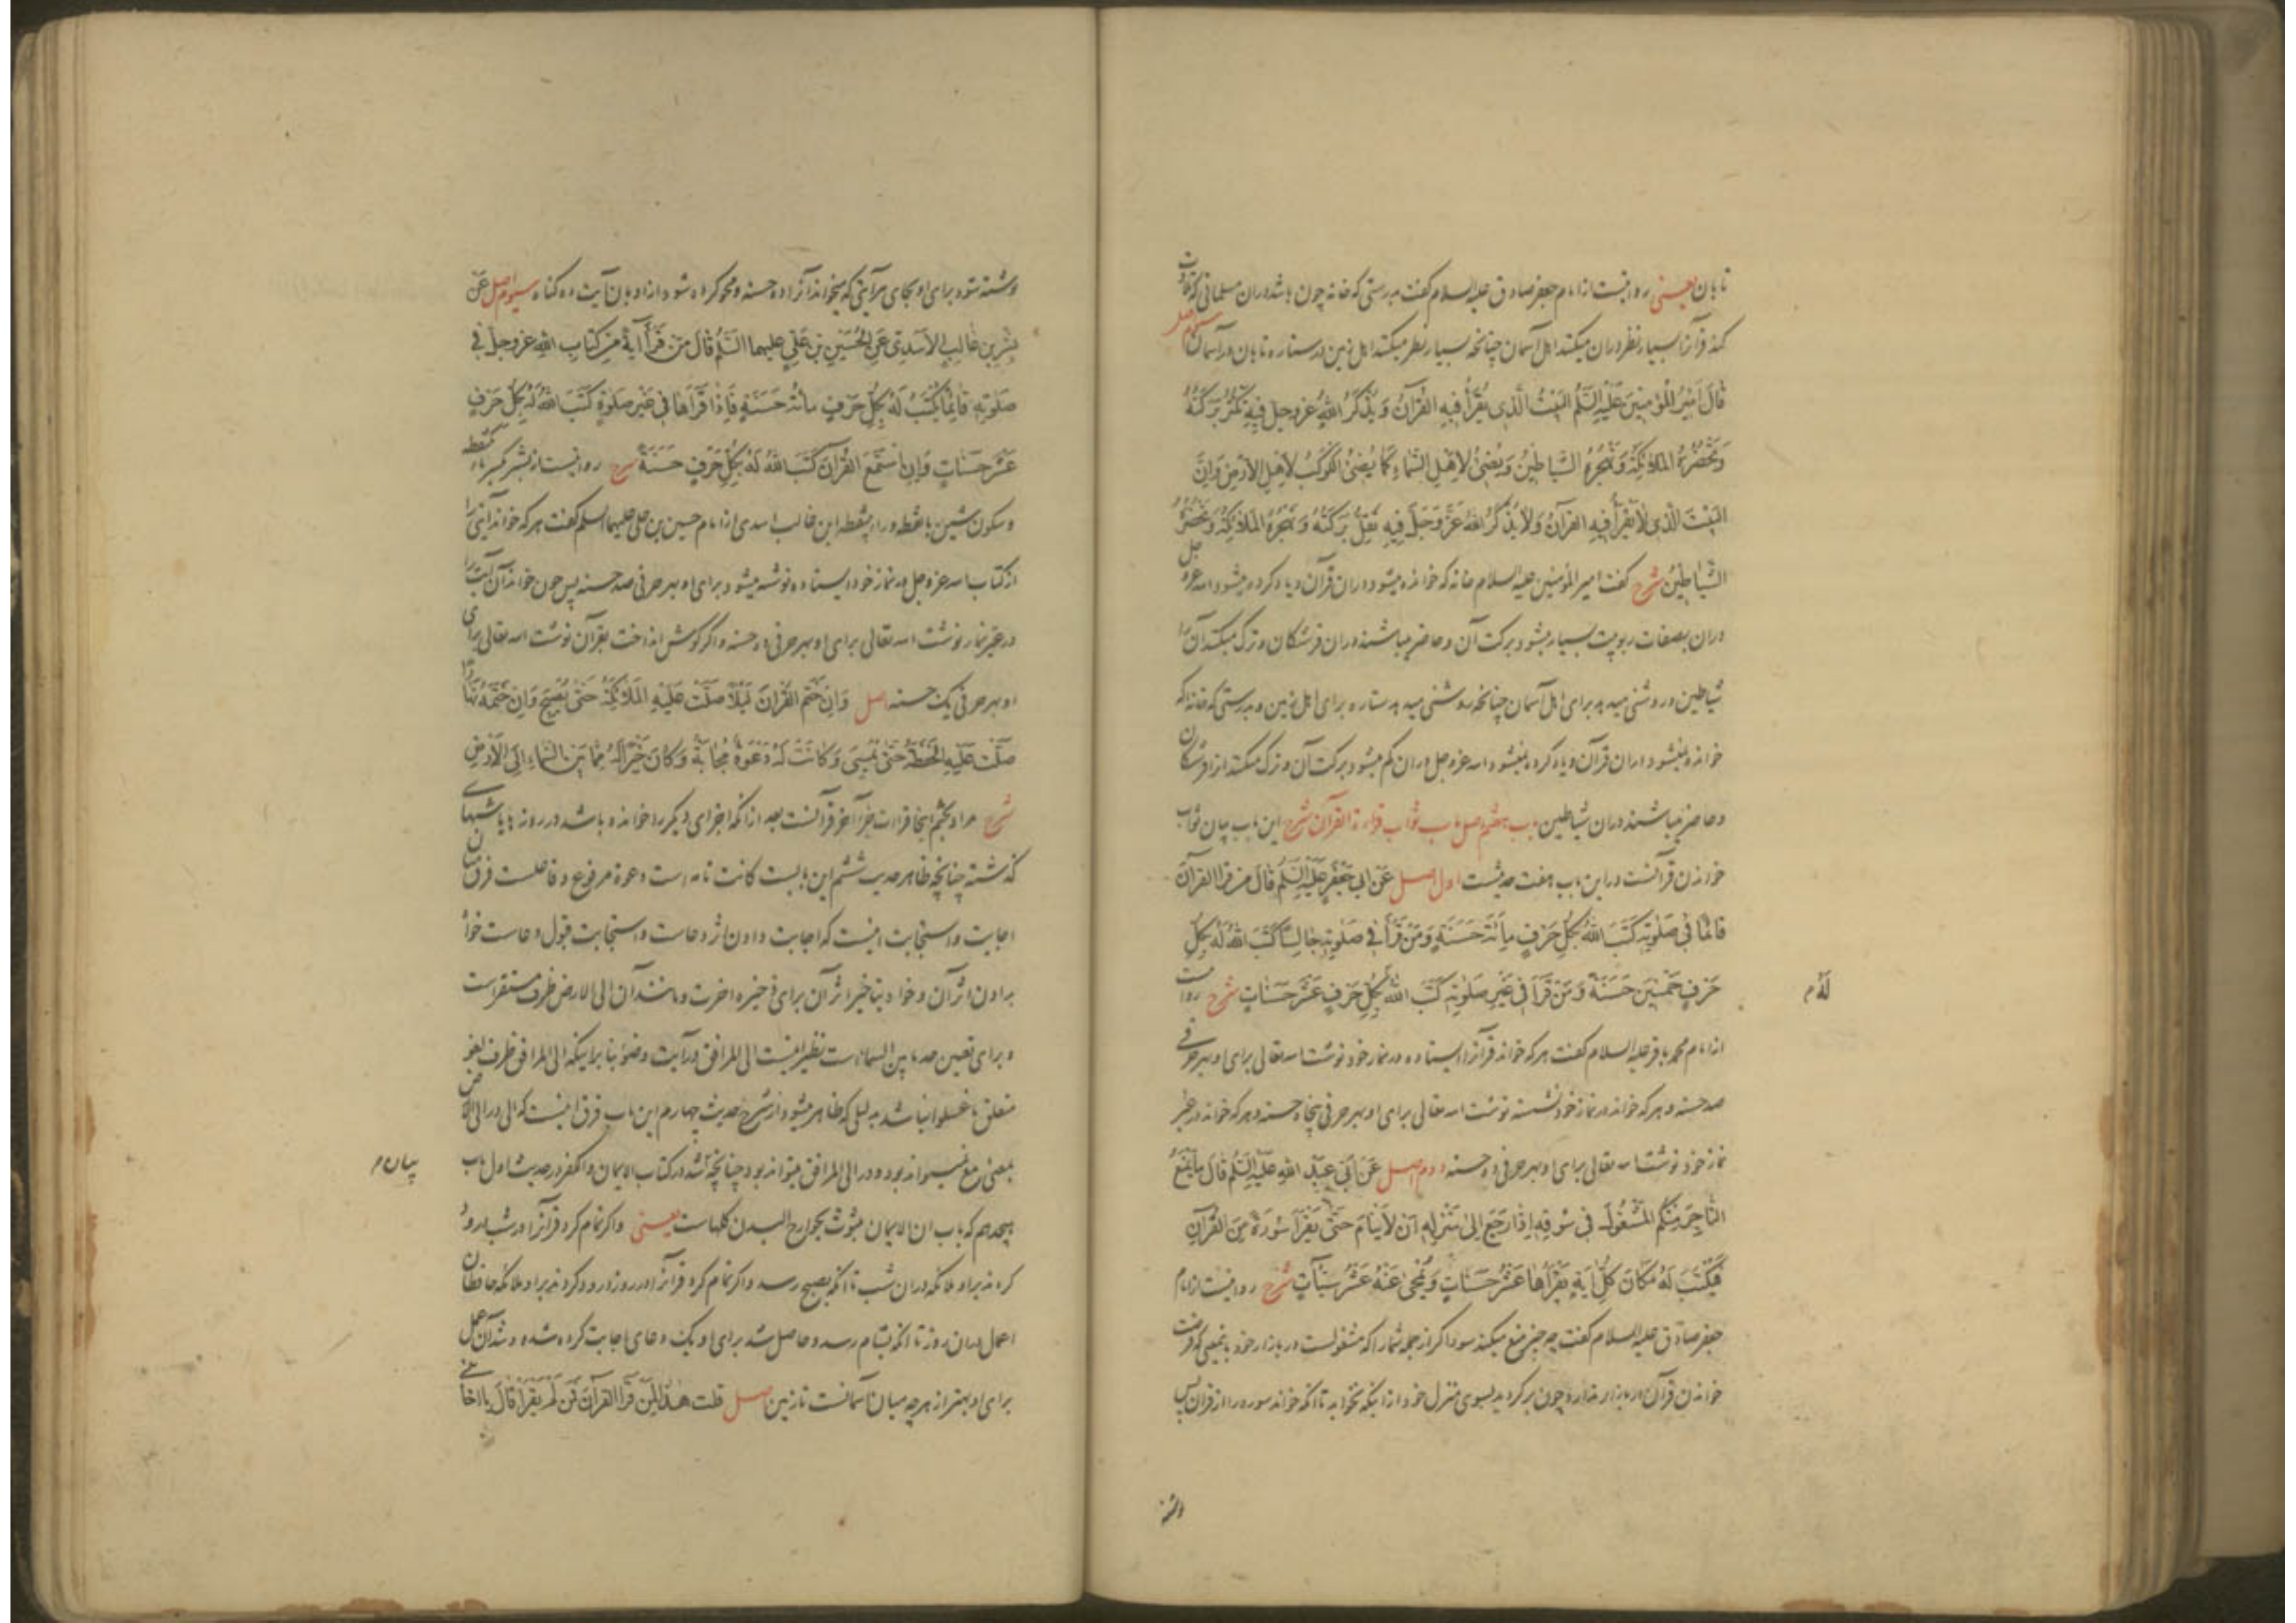 تابان یعنی روایتست از امام جعفر صادق علیه السلام گفت بدرستی که خانه چون باشد دران مسلمانی که تلاوت
کند قرآنرا بسیار نظر دران میکنند اهل آسمان چنانچه بسیار نظر میکنند اهل زمین در ستاره تابان در آسمان سوم اصل
قَالَ اَمیرُ المُؤمِنینَ عَلَیْهِ السَّلَمُ البَیْتُ الَّذی یُقْرَأُ فیهِ القُرْآنُ وَیُذْکَرُ اللهُ عز وجل فیهِ تَکْثُرُ بَرَکَتُهُ
وَتَحْضُرُهُ المَلائِکَةُ وَتَهْجُرُهُ الشَّیاطینُ وَیُضیٔ لِاَهْلِ السَّماءِ کَمَا یُضیٔ الکَوْکَبُ لِاَهْلِ الاَرْضِ وَاِنَّ
البَیْتَ الَّذی لَا یُقْرَأُ فیهِ القرآنُ وَلَا یُذْکَرُ اللهُ عَزَّ وَجَلَّ فیهِ تَقِلُّ بَرَکَتُهُ وَتَهْجُرُهُ المَلائِکَةُ وَتَحْضُرُهُ
الشَّیَاطینُ شرح گفت امیر المؤمنین علیه السلام خانه که خوانده میشود دران قرآن و یاد کرده میشود الله عز و جل
دران بصفات ربوبیت بسیار میشود برکت آن و حاضر میباشند دران فرشتگان و ترک میکنند آن را
شیاطین و روشنی میدهد برای اهل آسمان چنانچه روشنی میدهد ستاره برای اهل زمین و بدرستی که خانه که
خوانده نمیشود دران قرآن و یاد کرده نمیشود الله عز و جل دران کم میشود برکت آن و ترک میکنند انرا فرشتگان
و حاضر میباشند دران شیاطین باب هفتم اصل باب ثواب قراءة القرآن شرح این باب بیان ثواب
خواندن قرآنست در این باب هفت حدیثست اول اصل عَنْ ابی جَعْفَرٍ عَلَیْهِ السَّلَمُ قَالَ مَن قَرَأَ القرآنَ
قائمًا فی صَلوتِه کَتَبَ اللهُ بِکُلِّ حَرْفٍ مِائَةَ حَسَنَةٍ وَمَنْ قَرَأَ فی صَلوتِه جَالِسًا کَتَبَ اللهُ لَهُ بِکُلِّ
حَرْفٍ خَمْسینَ حَسَنَةً وَمَنْ قَرَأَ فی غَیْرِ صَلوتِه کَتَبَ اللهُ بِکُلِّ حَرْفٍ عَشْرَ حَسَناتٍ شرح روایتست
لَهُ م
از امام محمد باقر علیه السلام گفت هر که خواند قرآنرا ایستاده در نماز خود نوشت الله تعالی برای او بهر حرفی
صد حسنه و هر که خواند در نماز خود نشسته نوشت الله تعالی برای او بهر حرفی پنجاه حسنه و هر که خواند در غیر
نماز خود نوشت الله تعالی برای او بهر حرفی ده حسنه دوم اصل عَنْ اَبی عَبْدِ اللهِ عَلَیْهِ السَّلَمُ قَالَ مَا یَمْنَعُ
التَّاجِرَ مِنْکُمُ المَشْغُولَ فی سُوقِهِ اِذَا رَجَعَ اِلیٰ مَنْزِلِهِ اَنْ لَا یَنَامَ حَتّیٰ یَقْرَأَ سُورَةً مِنَ القُرْآنِ
فَیُکْتَبَ لَهُ مَکَانَ کُلِّ اٰیَةٍ یَقْرَأُهَا عَشْرُ حَسَنَاتٍ وَیُمْحیٰ عَنْهُ عَشْرُ سَیِّئَاتٍ شرح روایتست از امام
جعفر صادق علیه السلام گفت چه چیز منع میکند سوداگر از جمله شما را که مشغولست در بازار خود بنوعی که فرصت
خواندن قرآن در بازار ندارد چون برگردید بسوی منزل خود از اینکه نخوابد تا آنکه خواند سوره را از قرآن پس
نوشته
نوشته شود برای او بجای هر آیتی که میخواند آنرا ده حسنه و محو کرده شود از او بان آیت ده گناه سیوم اصل عَنْ
بِشْرِ بنِ غالِبِ الاَسَدِیِّ عَنِ الحُسَیْنِ بْنِ عَلِیٍّ علیهما السَّلَم قَالَ مَنْ قَرَأَ اٰیَةً مِنْ کِتَابِ اللهِ عز وجل فی
صَلوتِهِ قائِمًا یُکْتَبُ لَهُ بِکُلِّ حَرْفٍ مِائَةُ حَسَنَةٍ فَاِذَا قَرَأَهَا فی غَیْرِ صَلوةٍ کَتَبَ اللهُ لَهُ بِکُلِّ حَرْفٍ
عَشْرَ حَسَنَاتٍ وَاِنِ اسْتَمَعَ القُرْآنَ کَتَبَ اللهُ لَهُ بِکُلِّ حَرْفٍ حَسَنَةً شرح روایتست از بشر بکسر باء یکنقطه
و سکون شین با نقطه و راء بی نقطه ابن غالب اسدی از امام حسین بن علی علیهما السلم گفت هر که خواند آیتی را
از کتاب الله عز و جل در نماز خود ایستاده نوشته میشود برای او بهر حرفی صد حسنه پس چون خواند آن آیت را
در غیر نماز نوشت الله تعالی برای او بهر حرفی ده حسنه و اگر گوش انداخت بقرآن نوشت الله تعالی برای
او بهر حرفی یک حسنه اصل وَاِنْ خَتَمَ القُرْآنَ لَیْلاً صَلَّتْ عَلَیْهِ المَلائِکَةُ حَتّیٰ یُصْبِحَ وَاِنْ خَتَمَهُ نَهَارًا
صَلَّتْ عَلَیْهِ الحَفَظَةُ حَتّیٰ یُمْسِیَ وَکَانَتْ لَهُ دَعْوَةٌ مُجَابَةٌ وَکَانَ خَیْرًا لَهُ مِمَّا بَیْنَ السَّمَاءِ اِلَی الاَرْضِ
شرح مراد بختم اینجا قراءت جزء آخر قرآنست بعد از آنکه اجزای دیگر را خوانده باشد در روزها یا شبهای
گذشته چنانچه ظاهر حدیث ششم این بابست کانت تامه است و دعوة مرفوع و فاعلست فرق میان
اجابت و استجابت اینست که اجابت دادن اثر دعاست و استجابت قبول دعاست خواه
بدادن اثر آن و خواه بتأخیر اثر آن برای ذخیره آخرت و مانند آن الی الارض ظرف مستقر است
و برای تعیین حد ما بین السماء است نظیر اینست الی المرافق در آیت وضو بنا بر اینکه الی المرافق ظرف لغو
متعلق باغسلوا نباشد بدلیلی که ظاهر میشود از شرح حدیث چهارم این باب فرق اینست که الی در الی الارض
بمعنی مع نمیتواند بود و در الی المرافق میتواند بود چنانچه شد در کتاب الایمان و الکفر در حدیث اول باب
بیان م
هیجدهم که باب ان الایمان مبثوث بجوارح البدن کلهاست یعنی و اگر تمام کرد قرآنرا در شب درود
کردند بر او ملائکه دران شب تا آنکه بصبح رسد و اگر تمام کرد قرآنرا در روز درود کردند بر او ملائکه حافظان
اعمال دران روز تا آنکه بشام رسد و حاصل شد برای او یک دعای اجابت کرده شده و شد آن عمل
برای او بهتر از هر چه میان آسمانست تا زمین اصل قلت هٰذَا لِمَنْ قَرَأَ القرآنَ فَمَنْ لَمْ یَقْرَأْ قَالَ یا اخا بنی